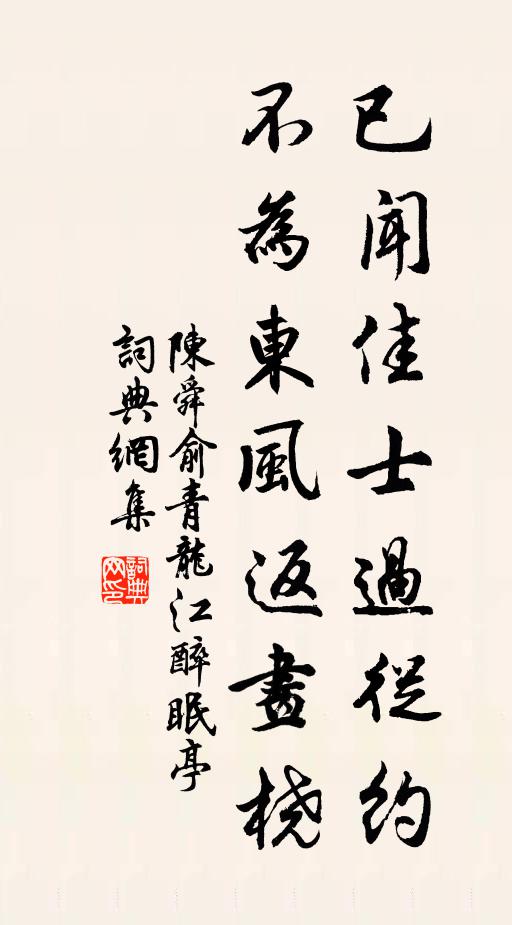 已聞佳士過從約
不為東風返畫橈
陳舜俞青龍江醉眠亭
詞典網集
詞典網印